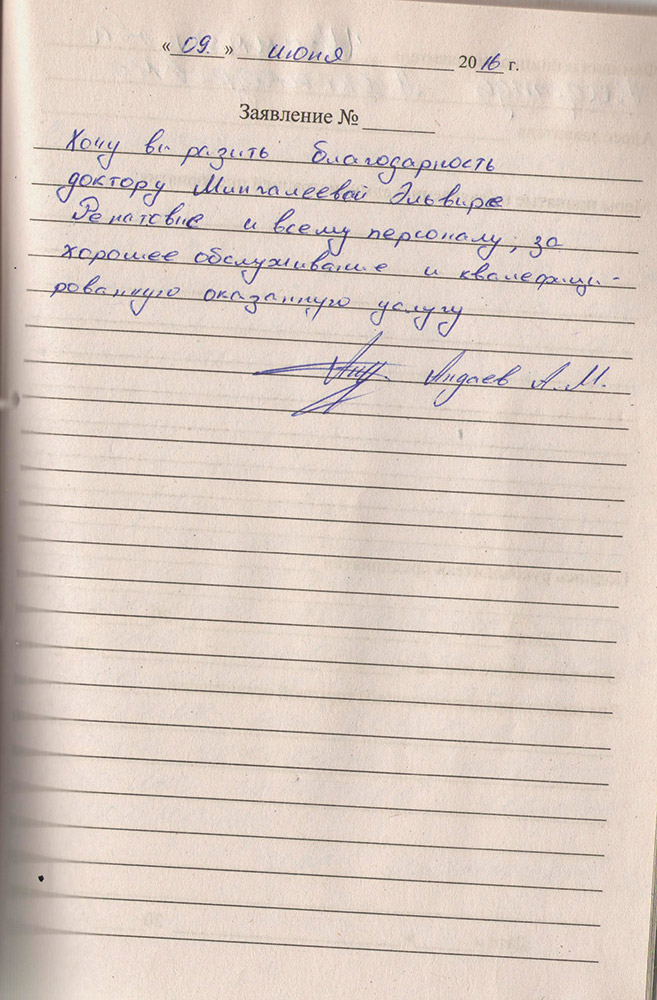 « 09. » июня 2016 г.
Заявление №
Хочу выразить благодарность
доктору Мингалеевой Эльвире
Ренатовне и всему персоналу, за
хорошее обслуживание и квалефици-
рованную оказанную услугу
Андаев А.М.